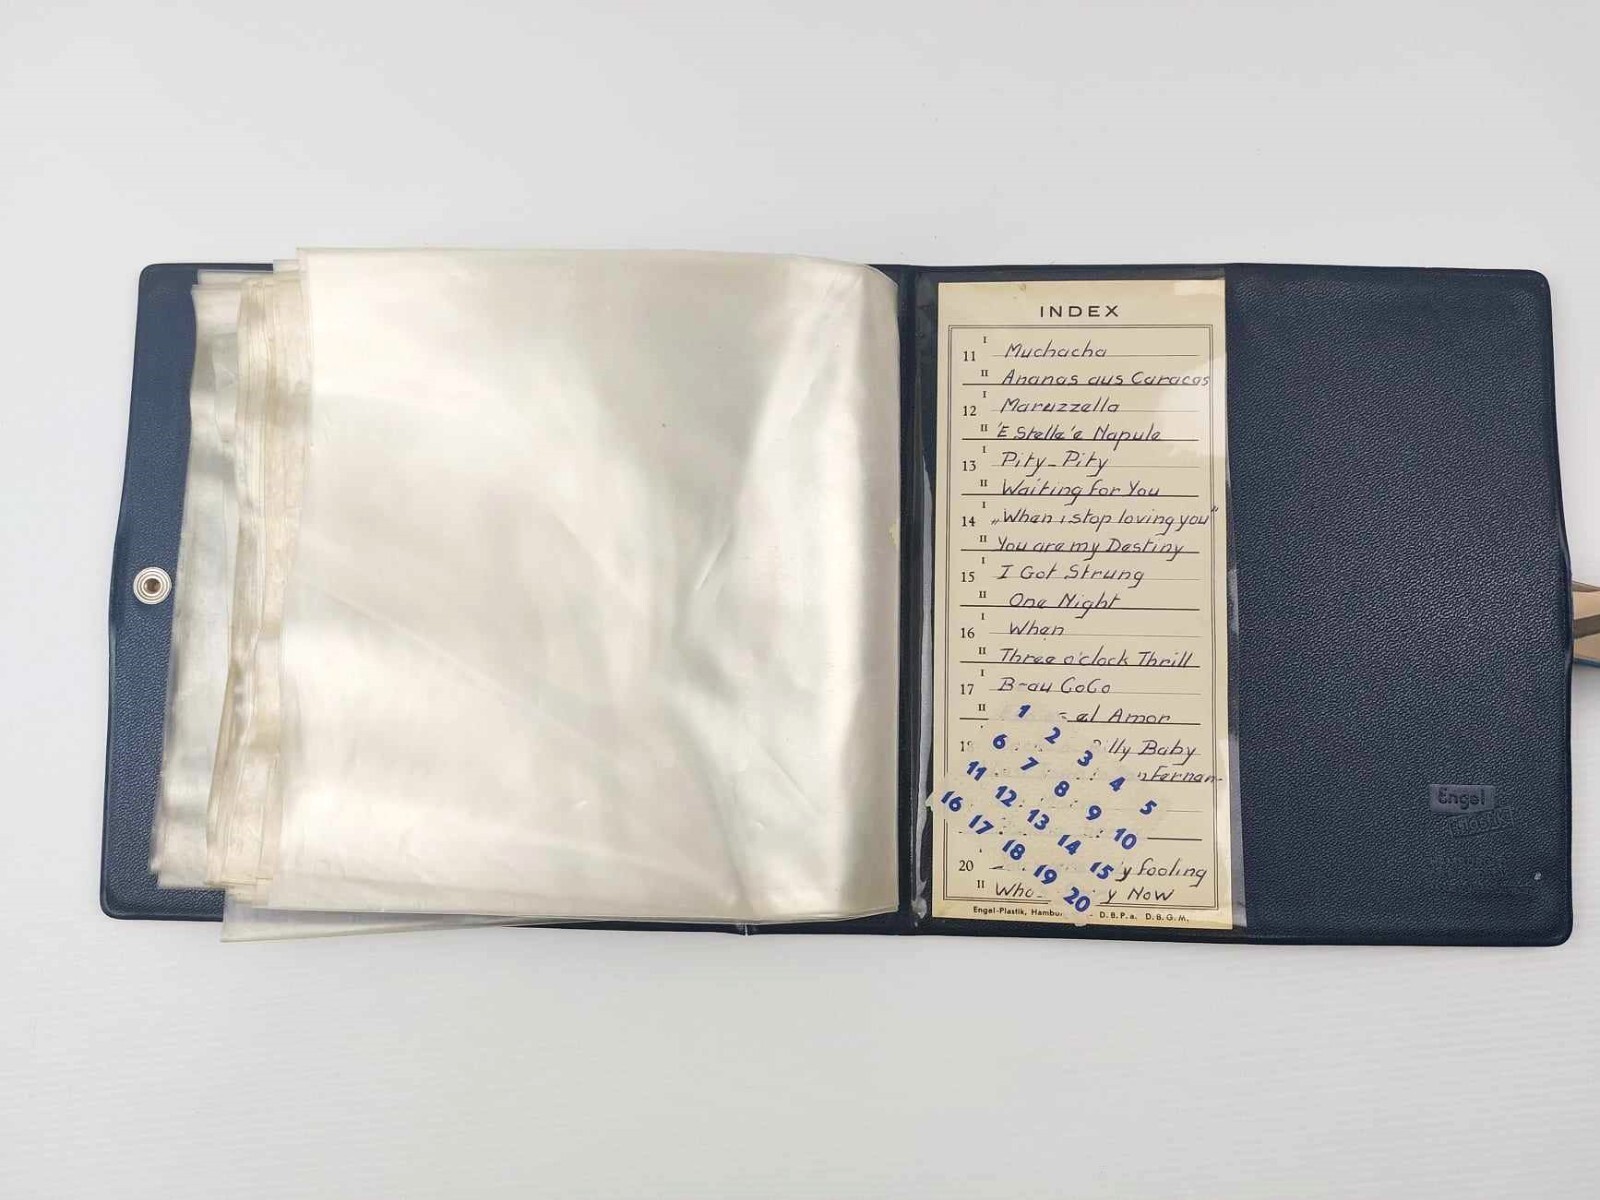 INDEX
11 I Muchacha
II Ananas aus Caracas
12 I Maruzzella
II 'E Stelle 'e Napule
13 I Pity-Pity
II Waiting for You
14 I „When i stop loving you"
II You are my Destiny
15 I I Got Strung
II One Night
16 I When
II Three o'clock Thrill
17 I B-au CoCo
II al Amor
Baby
20 fooling
II Now
Engel-Plastik, D.B.P.a. D.B.G.M.
1 2 3 4 5
6 7 8 9 10
11 12 13 14 15
16 17 18 19 20
Engel
Plastik